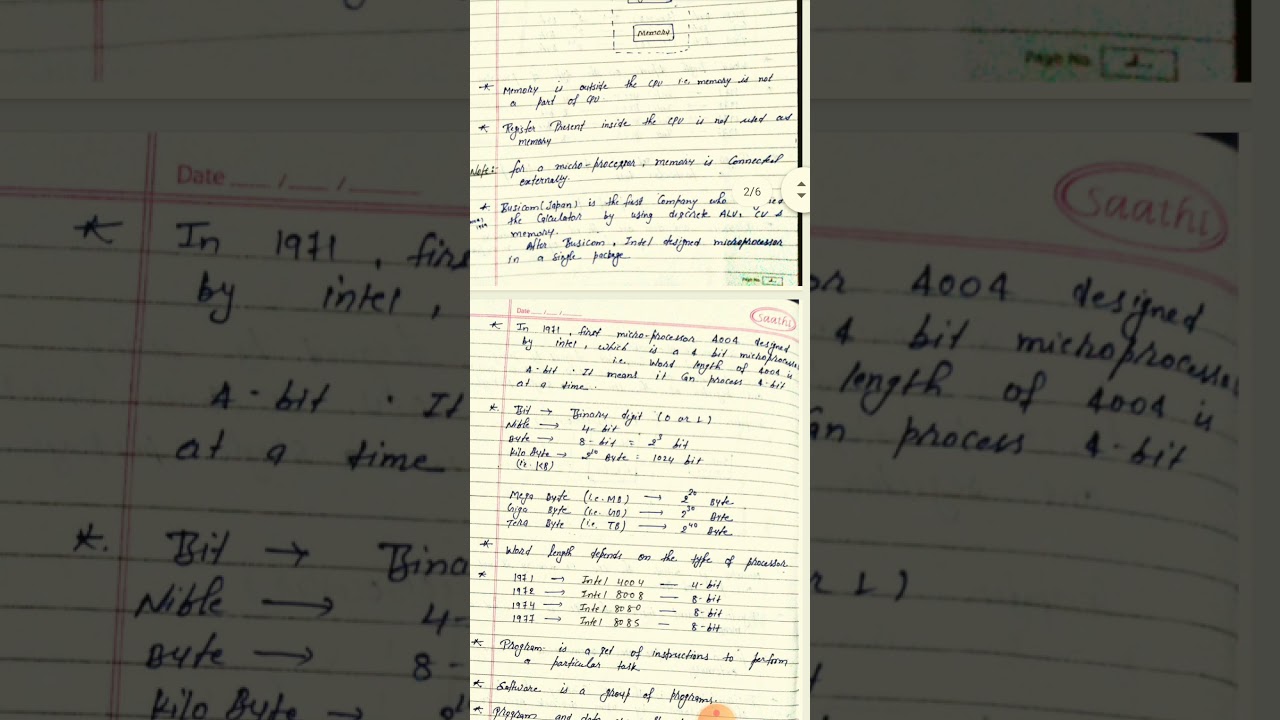 Memory
* Memory is outside the CPU i.e. memory is not
a part of CPU.
* Register Present inside the CPU is not used as
memory
Note:- for a micro-processor, memory is Connected
externally.
2/6
* Busicom (Japan) is the first Company who
the Calculator by using discrete ALU, CU &
memory.
After Busicom, Intel designed microprocessor
in a single package
Page No.
Date ___ / ___ / ___
Saathi
* In 1971, first micro-processor 4004 designed
by intel, which is a 4 bit microprocessor
i.e. word length of 4004 is
4-bit. It means it Can process 4-bit
at a time.
* Bit → Binary digit (0 or 1)
Nible → 4-bit
Byte → 8-bit = 2³ bit
Kilo Byte → 2¹⁰ Byte = 1024 bit
(i.e. KB)
Mega Byte (i.e. MB) → 2²⁰ Byte
Giga Byte (i.e. GB) → 2³⁰ Byte
Tera Byte (i.e. TB) → 2⁴⁰ Byte
* Word length depends on the type of processor
* 1971 → Intel 4004 — 4-bit
1972 → Intel 8008 — 8-bit
1974 → Intel 8080 — 8-bit
1977 → Intel 8085 — 8-bit
* Program is a set of instructions to perform
a particular task
* Software is a group of programs.
* Program and data
Page No.
Date ___ / ___ / ___
Saathi
* In 1971, firs
or 4004 designed
by intel,
4 bit microprocessor
length of 4004 is
4-bit. It
an process 4-bit
at a time
* Bit → Bina
r 1)
Nible → 4-
Byte → 8-
Kilo Byte →